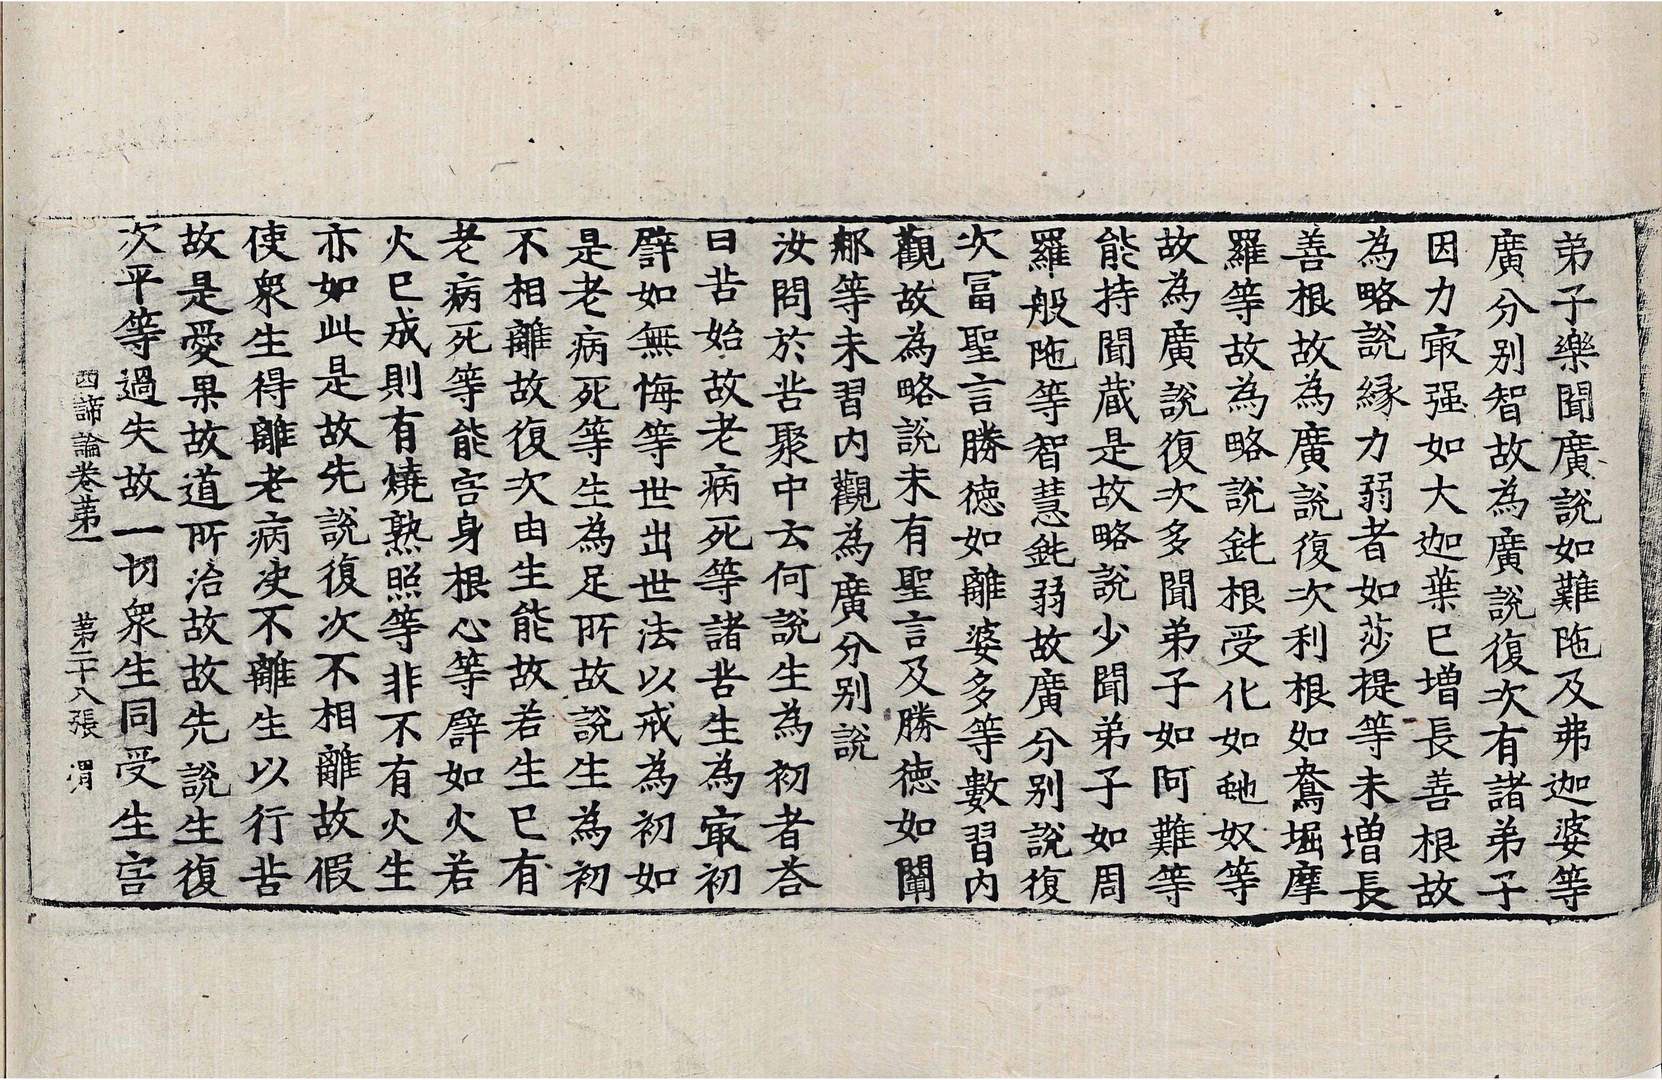 弟子樂聞廣說如難陁及弗迦婆等
廣分別智故為廣說復次有諸弟子
因力㝡强如大迦葉已增長善根故
為略說縁力弱者如莎提等未增長
善根故為廣說復次利根如鴦堀摩
羅等故為略說鈍根受化如虵奴等
故為廣說復次多聞弟子如阿難等
能持聞蔵是故略說少聞弟子如周
羅般陁等智慧鈍弱故廣分別說復
次冨聖言勝徳如離婆多等數習内
觀故為略說未有聖言及勝徳如闡
那等未習内觀為廣分別說
汝問於苦聚中云何說生為初者荅
曰苦始故老病死等諸苦生為㝡初
譬如無悔等世出世法以戒為初如
是老病死等生為足所故說生為初
不相離故復次由生能故若生已有
老病死等能害身根心等譬如火若
火已成則有燒熟照等非不有火生
亦如此是故先說復次不相離故假
使衆生得離老病決不離生以行苦
故是愛果故道所治故故先說生復
次平等過失故一切衆生同受生害
四諦論卷苐一 苐二十八張 渭